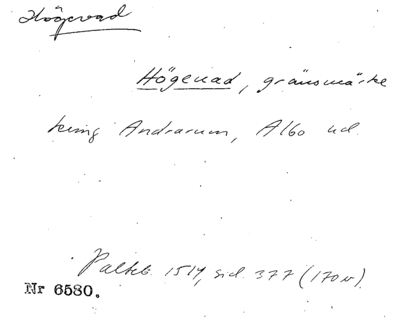 Högevad
Högevad, gränsmärke
kring Andrarum, Albo hd.
Palteb. 1514, sid. 377 (170v)
Nr 6580.